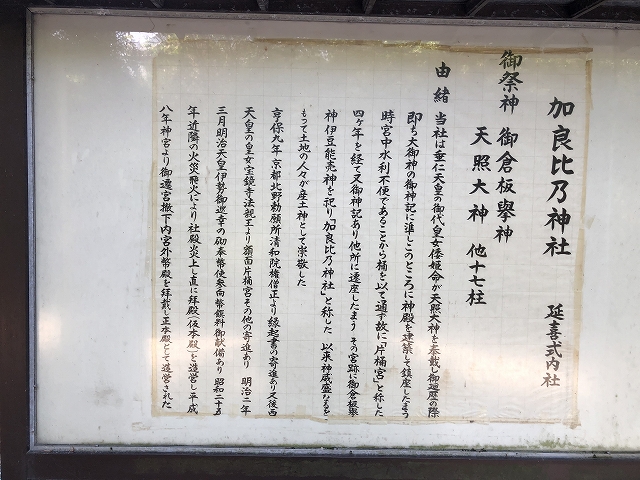 加良比乃神社 延喜式内社
御祭神 御倉板擧神
天照大神 他十七柱
由緒 当社は垂仁天皇の御代皇女倭姫命が天照大神を奉戴し御遷歴の際
即ち大御神の御神記に準じこのところに神殿を建築して鎮座したまう
時宮中水利不便であることから樋を以て通ず故に「片樋宮」と称した
四ヶ年を経て又御神記あり他所に遷座したまう その宮跡に御倉板擧
神伊豆能売神を祀り「加良比乃神社」と称した 以来神威盛なるを
もって土地の人々が産土神として崇敬した
享保九年京都北野勅願所清和院権僧正より縁起書の寄進あり又後西
天皇の皇女宝鏡寺法親王より額面片樋宮その他の寄進あり 明治二年
三月明治天皇伊勢御巡幸の砌奉幣使参向幣饌料御献備あり 昭和二十五
年近隣の火災飛火により社殿炎上し直に拝殿(仮本殿)を造営し平成
八年神宮より御遷宮撤下内宮外幣殿を拝戴し正本殿として造営された